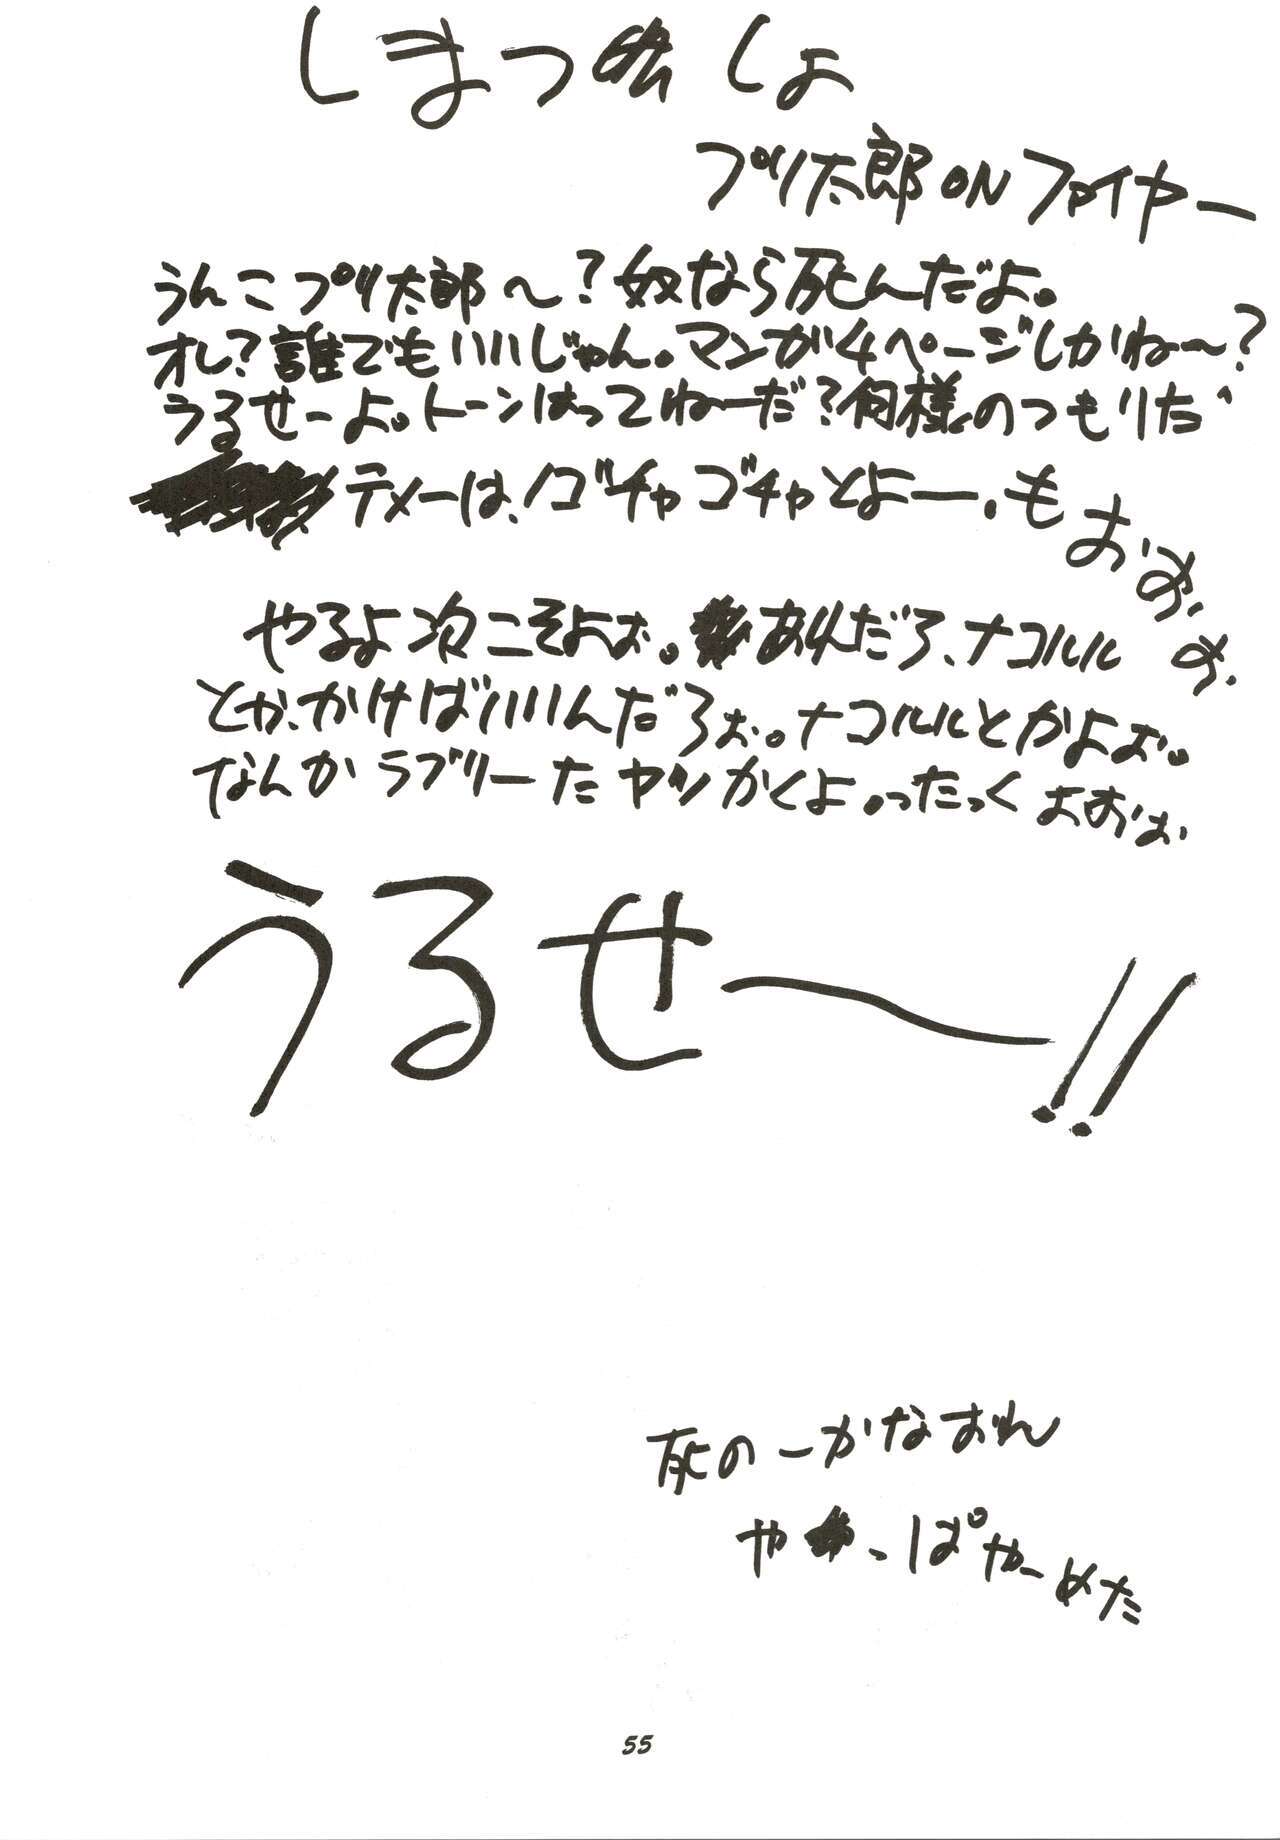 しまつ しょ
プリ太郎 ON ファイヤー
うんこプリ太郎〜?奴なら死んだよ。
オレ?誰でもいいじゃん。マンガ4ページしかね〜?
うるせーよ。トーンはってねーだ?何様のつもりだ
テメーは、ゴチャゴチャとよー。もおおお
やるよ次こそよぉ。あれだろ、ナコルル
とか、かけばいいんだろぉ。ナコルルとかよぉ。
なんかラブリーたヤツかくよ。ったっくよおおぉ
うるせ〜!!
死のーかなおれ
やっぱやーめた
55